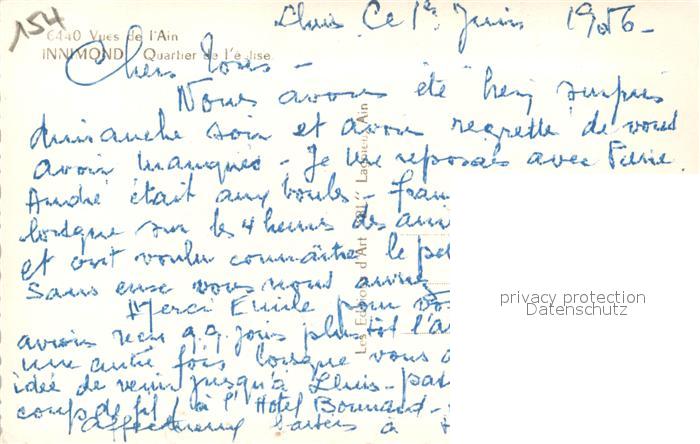 154
6440 Vues de l'Ain
INNIMOND Quartier de l'église
Lhuis Ce 1er Juin 1956 -
Chers Tous -
Nous avons été bien surpris
dimanche soir et avons regretté de vous
avoir manqués - Je me reposais avec Pierre
André était aux boules -
lorsque sur les 4 heures des
et ont voulu connaître le
Sans ense vous nous auriez
Merci Emile pour
avions reçu q.q. jours plus tôt
une autre fois lorsque vous
idée de venir jusqu'à Lhuis -
coup de fil à l'Hôtel Bonnard -
baisers à
Les Editions d'Art
Ain
privacy protection
Datenschutz